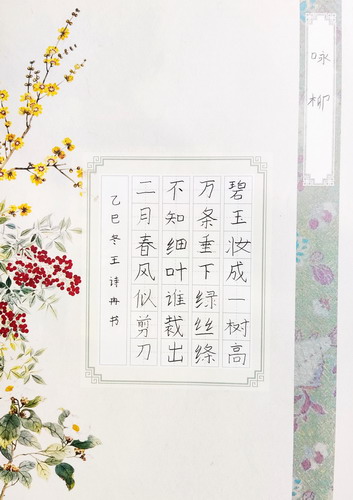 咏柳
碧玉妆成一树高
万条垂下绿丝绦
不知细叶谁裁出
二月春风似剪刀
乙巳冬王诗冉书